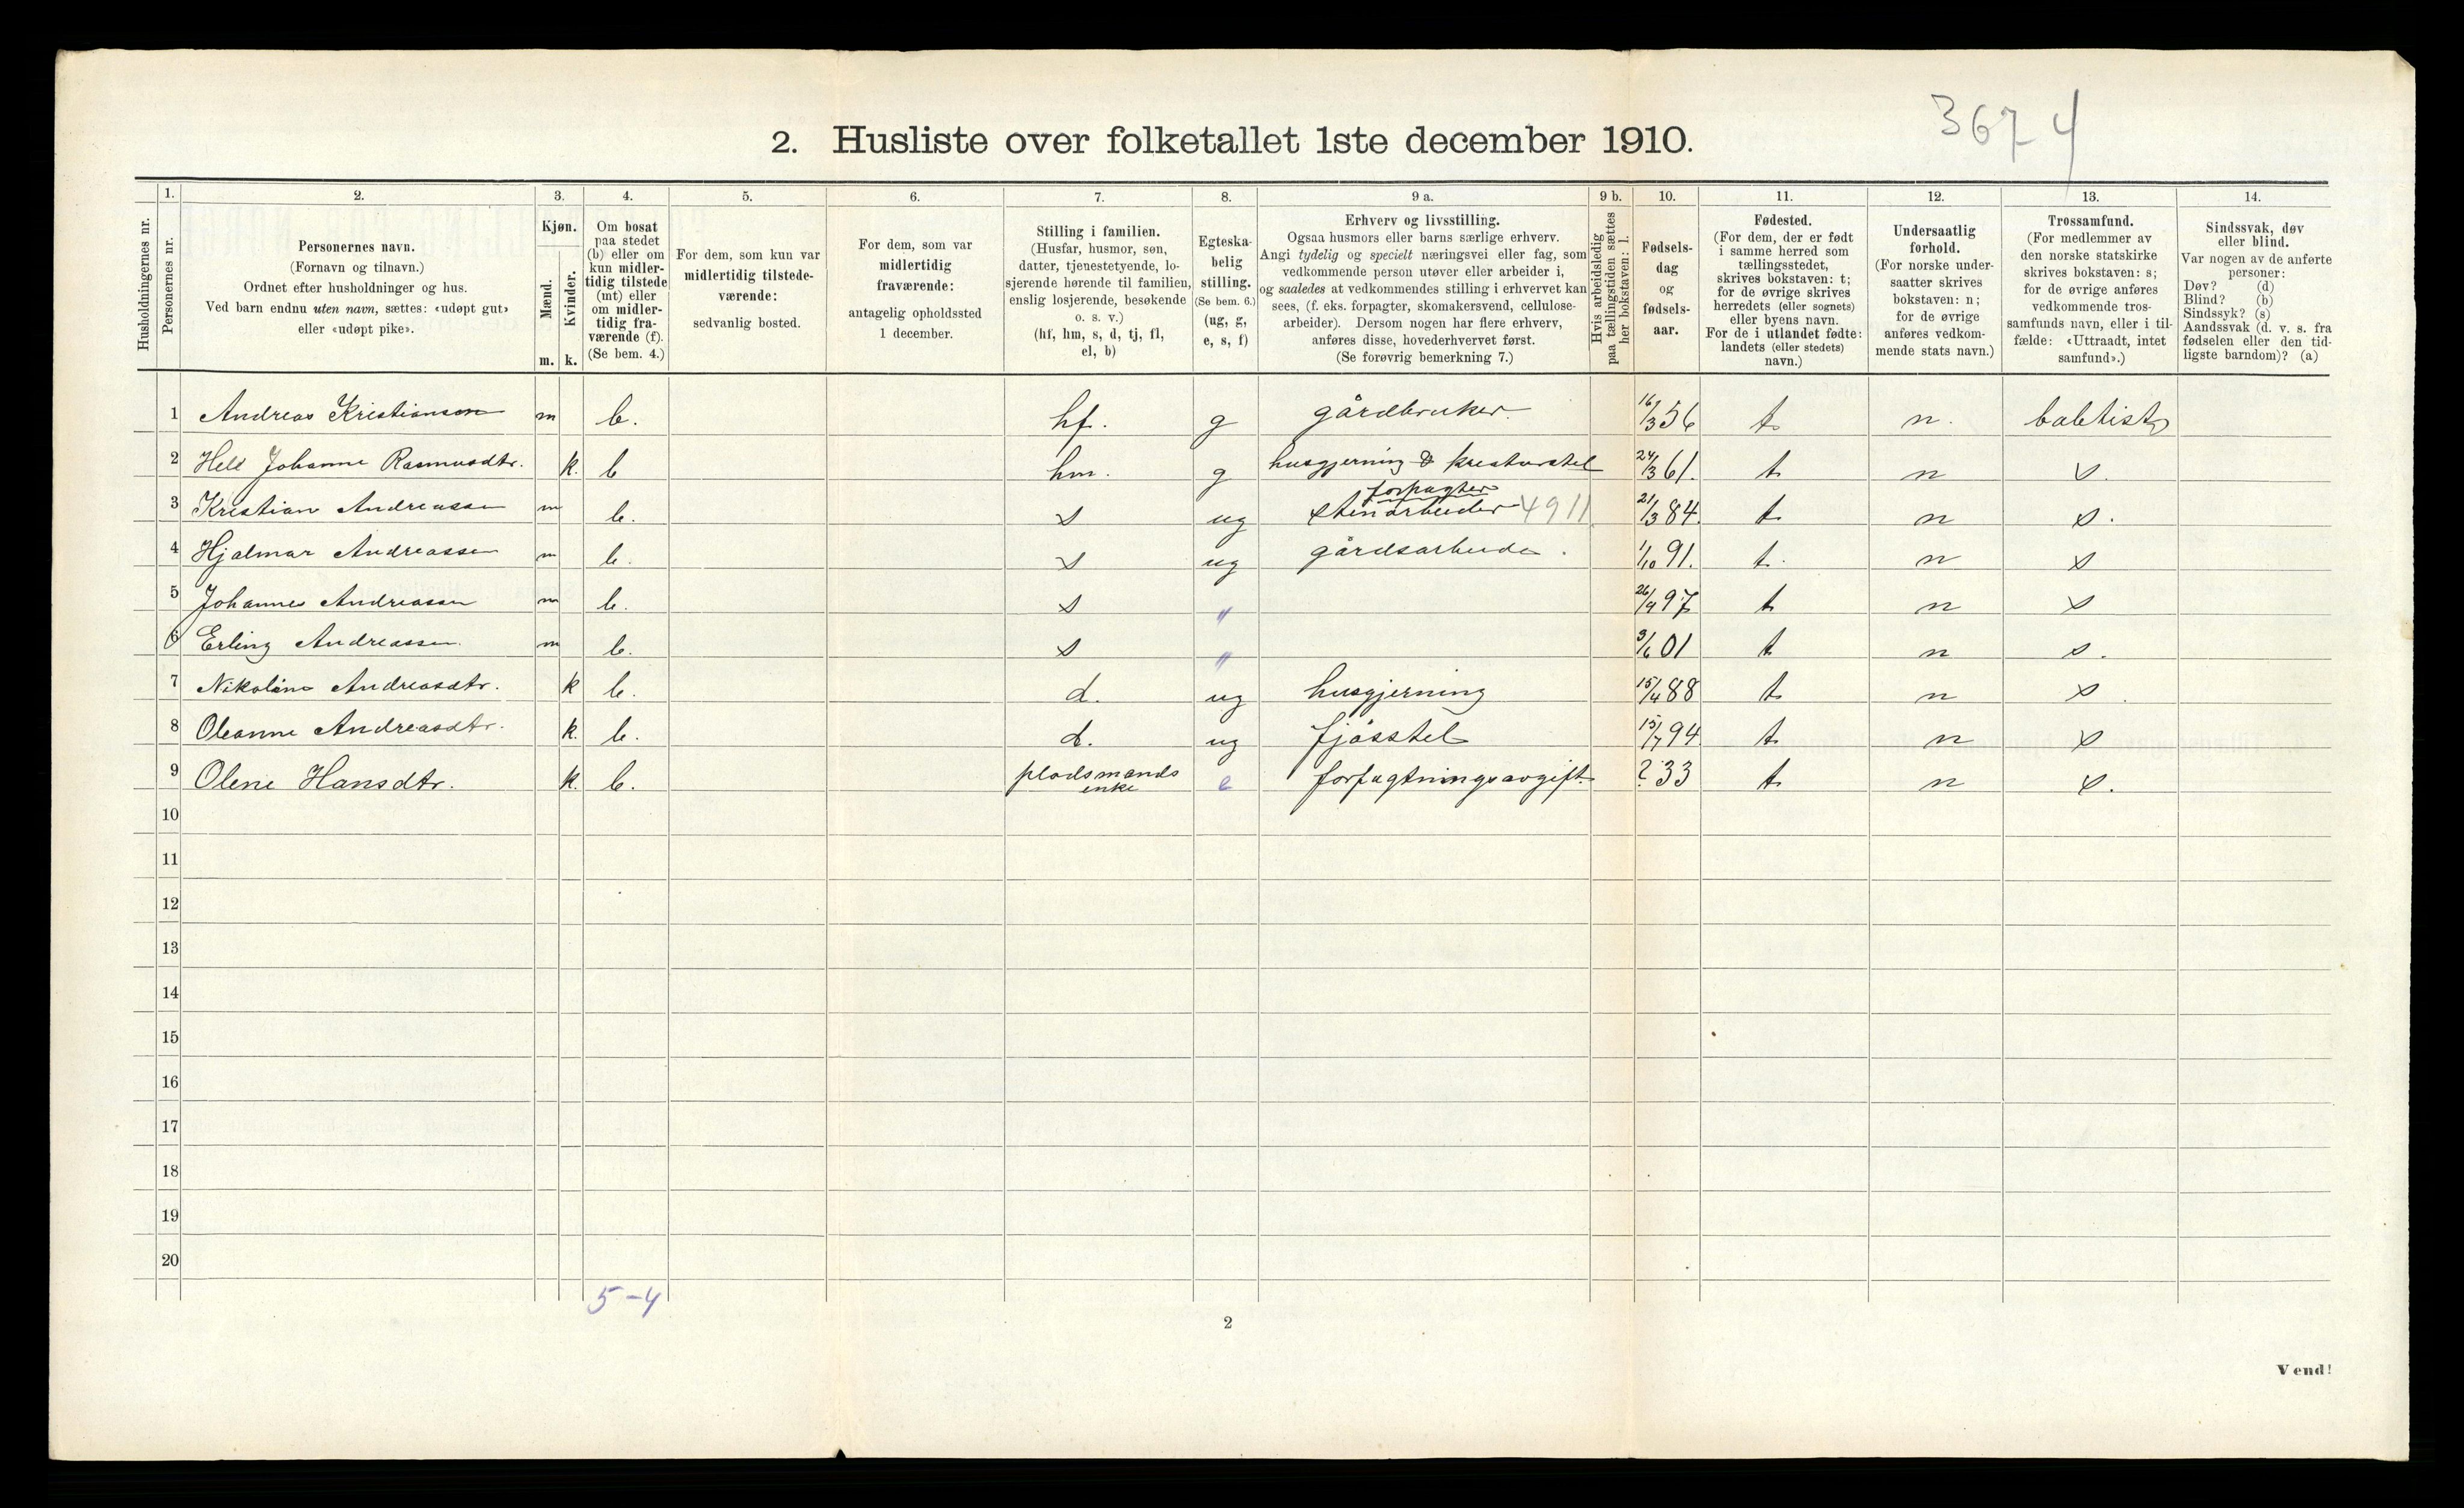 3674
2. Husliste over folketallet 1ste december 1910.
Husholdningernes nr.
1. Personernes nr.
2. Personernes navn.
(Fornavn og tilnavn.)
Ordnet efter husholdninger og hus.
Ved barn endnu uten navn, sættes: «udøpt gut»
eller «udøpt pike».
3. Kjøn.
Mænd. Kvinder.
m. k.
4. Om bosat
paa stedet
(b) eller om
kun midler-
tidig tilstede
(mt) eller
om midler-
tidig fra-
værende (f).
(Se bem. 4.)
5. For dem, som kun var
midlertidig tilstede-
værende:
sedvanlig bosted.
6. For dem, som var
midlertidig
fraværende:
antagelig opholdssted
1 december.
7. Stilling i familien.
(Husfar, husmor, søn,
datter, tjenestetyende, lo-
sjerende hørende til familien,
enslig losjerende, besøkende
o. s. v.)
(hf, hm, s, d, tj, fl,
el, b)
8. Egteska-
belig
stilling.
(Se bem. 6.)
(ug, g,
e, s, f)
9 a. Erhverv og livsstilling.
Ogsaa husmors eller barns særlige erhverv.
Angi tydelig og specielt næringsvei eller fag, som
vedkommende person utøver eller arbeider i,
og saaledes at vedkommendes stilling i erhvervet kan
sees, (f. eks. forpagter, skomakersvend, cellulose-
arbeider). Dersom nogen har flere erhverv,
anføres disse, hovederhvervet først.
(Se forøvrig bemerkning 7.)
9 b. Hvis arbeidsledig
paa tællingstiden sættes
her bokstaven: l.
10. Fødsels-
dag
og
fødsels-
aar.
11. Fødested.
(For dem, der er født
i samme herred som
tællingsstedet,
skrives bokstaven: t;
for de øvrige skrives
herredets (eller sognets)
eller byens navn.
For de i utlandet fødte:
landets (eller stedets)
navn.)
12. Undersaatlig
forhold.
(For norske under-
saatter skrives
bokstaven: n;
for de øvrige
anføres vedkom-
mende stats navn.)
13. Trossamfund.
(For medlemmer av
den norske statskirke
skrives bokstaven: s;
for de øvrige anføres
vedkommende tros-
samfunds navn, eller i til-
fælde: «Uttraadt, intet
samfund».)
14. Sindssvak, døv
eller blind.
Var nogen av de anførte
personer:
Døv? (d)
Blind? (b)
Sindssyk? (s)
Aandssvak (d. v. s. fra
fødselen eller den tid-
ligste barndom)? (a)
1 Andreas Kristianson m b. hf. g gårdbruker 16/3 56 t n. babtist
2 Hell Johanne Rasmusdtr. k. b hm. g husgjerning & kreaturstel 24/3 61. t n s.
forpagter
3 Kristian Andreassen m b. s ug stenarbeider 4911 21/3 84. t n s.
4 Hjalmar Andreassen m b. s ug gårdsarbeide. 1/10 91. t. n s
5 Johannes Andreassen m b. s " 26/9 97 t n s
6 Erling Andreassen. m b. s " 3/6 01 t n s.
7 Nikoline Andreasdtr. k b. d. ug husgjerning 15/4 88 t n s.
8 Oleanne Andreasdtr. k. b. d. ug fjøsstel 15/7 94 t n s
9 Olene Hansdtr. k. b. pladsmands e forpagtningsavgift. ? 33 t n s.
enke
10
11
12
13
14
15
16
17
18
19
20
5-4
2
Vend!